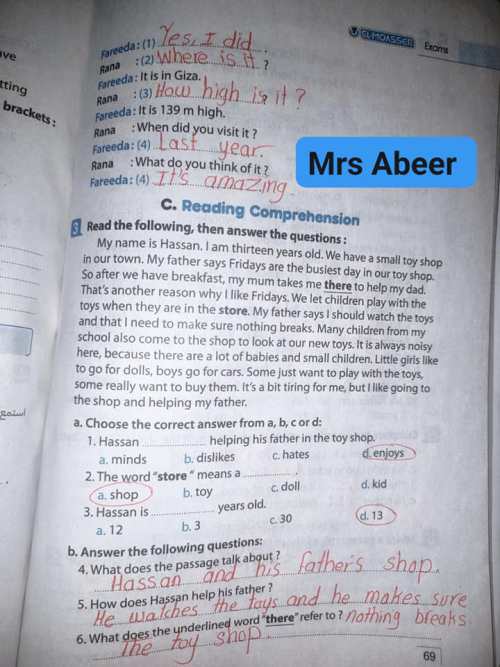 EL-MOASSER Exams
Fareeda: (1) Yes, I did.
Rana : (2) Where is it ?
Fareeda: It is in Giza.
Rana : (3) How high is it ?
Fareeda: It is 139 m high.
Rana : When did you visit it ?
Fareeda: (4) Last year.
Rana : What do you think of it ?
Fareeda: (4) It's amazing.
Mrs Abeer
tting
brackets :
C. Reading Comprehension
3 Read the following, then answer the questions :
My name is Hassan. I am thirteen years old. We have a small toy shop
in our town. My father says Fridays are the busiest day in our toy shop.
So after we have breakfast, my mum takes me there to help my dad.
That's another reason why I like Fridays. We let children play with the
toys when they are in the store. My father says I should watch the toys
and that I need to make sure nothing breaks. Many children from my
school also come to the shop to look at our new toys. It is always noisy
here, because there are a lot of babies and small children. Little girls like
to go for dolls, boys go for cars. Some just want to play with the toys,
some really want to buy them. It's a bit tiring for me, but I like going to
the shop and helping my father.
استمع
a. Choose the correct answer from a, b, c or d:
1. Hassan .................. helping his father in the toy shop.
a. minds b. dislikes c. hates d. enjoys
2. The word "store " means a .................. .
a. shop b. toy c. doll d. kid
3. Hassan is .................. years old.
a. 12 b. 3 c. 30 d. 13
b. Answer the following questions:
4. What does the passage talk about ?
Hassan and his father's shop.
5. How does Hassan help his father ?
He watches the toys and he makes sure
nothing breaks
6. What does the underlined word "there" refer to ?
The toy shop.
69